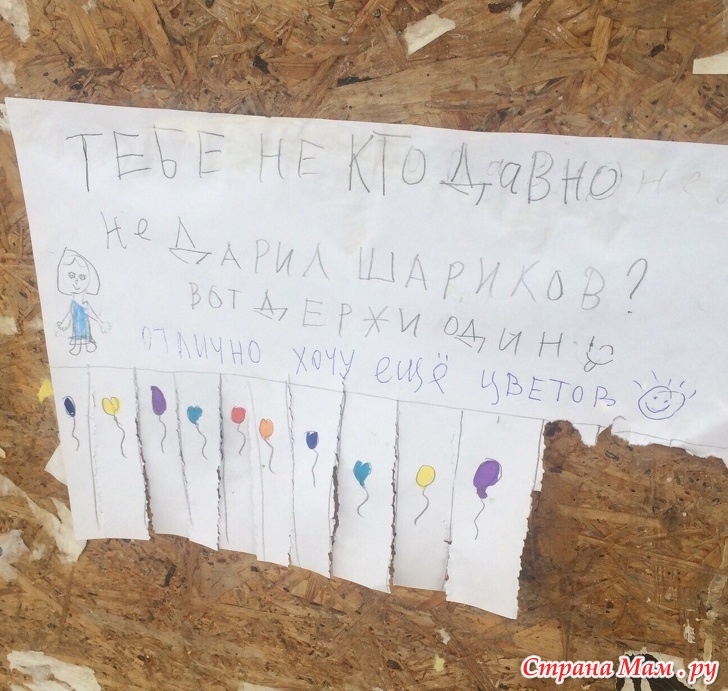 ТЕБЕ НЕ КТО ДАВНО не
не ДАРИЛ ШАРИКОВ?
ВОТ ДЕРЖИ ОДИН
ОТЛИЧНО ХОЧУ ЕЩЁ ЦВЕТОВ
Страна Мам.ру